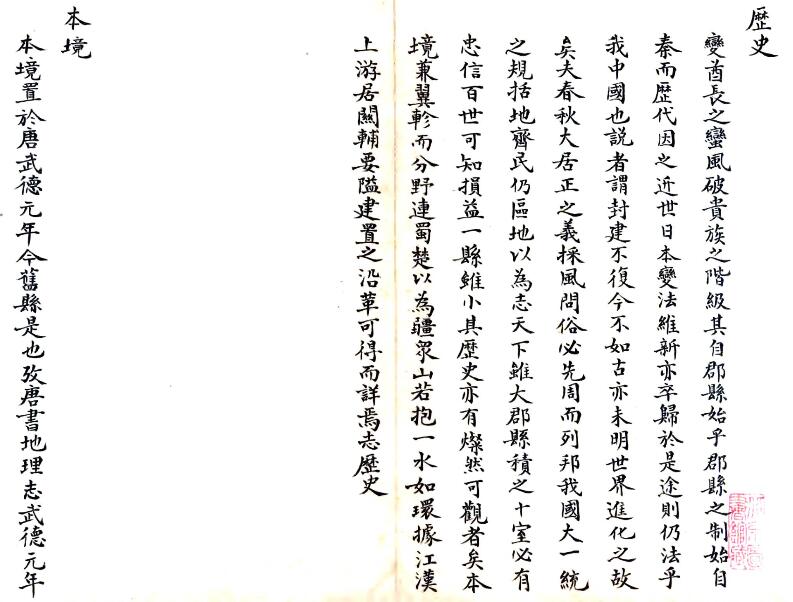 歷史
變酋長之蠻風破貴族之階級其自郡縣始乎郡縣之制始自
秦而歷代因之近世日本變法維新亦卒歸於是途則仍法乎
我中國也説者謂封建不復今不如古亦未明世界進化之故
矣夫春秋大居正之義採風問俗必先周而列邦我國大一統
之規括地齊民仍區地以為志天下雖大郡縣積之十室必有
忠信百世可知損益一縣雖小其歷史亦有燦然可觀者矣本
境兼翼軫而分野連蜀楚以為疆眾山若抱一水如環據江漢
上游居關輔要隘建置之沿革可得而詳焉志歷史
本境
本境置於唐武德元年今舊縣是也攷唐書地理志武德元年